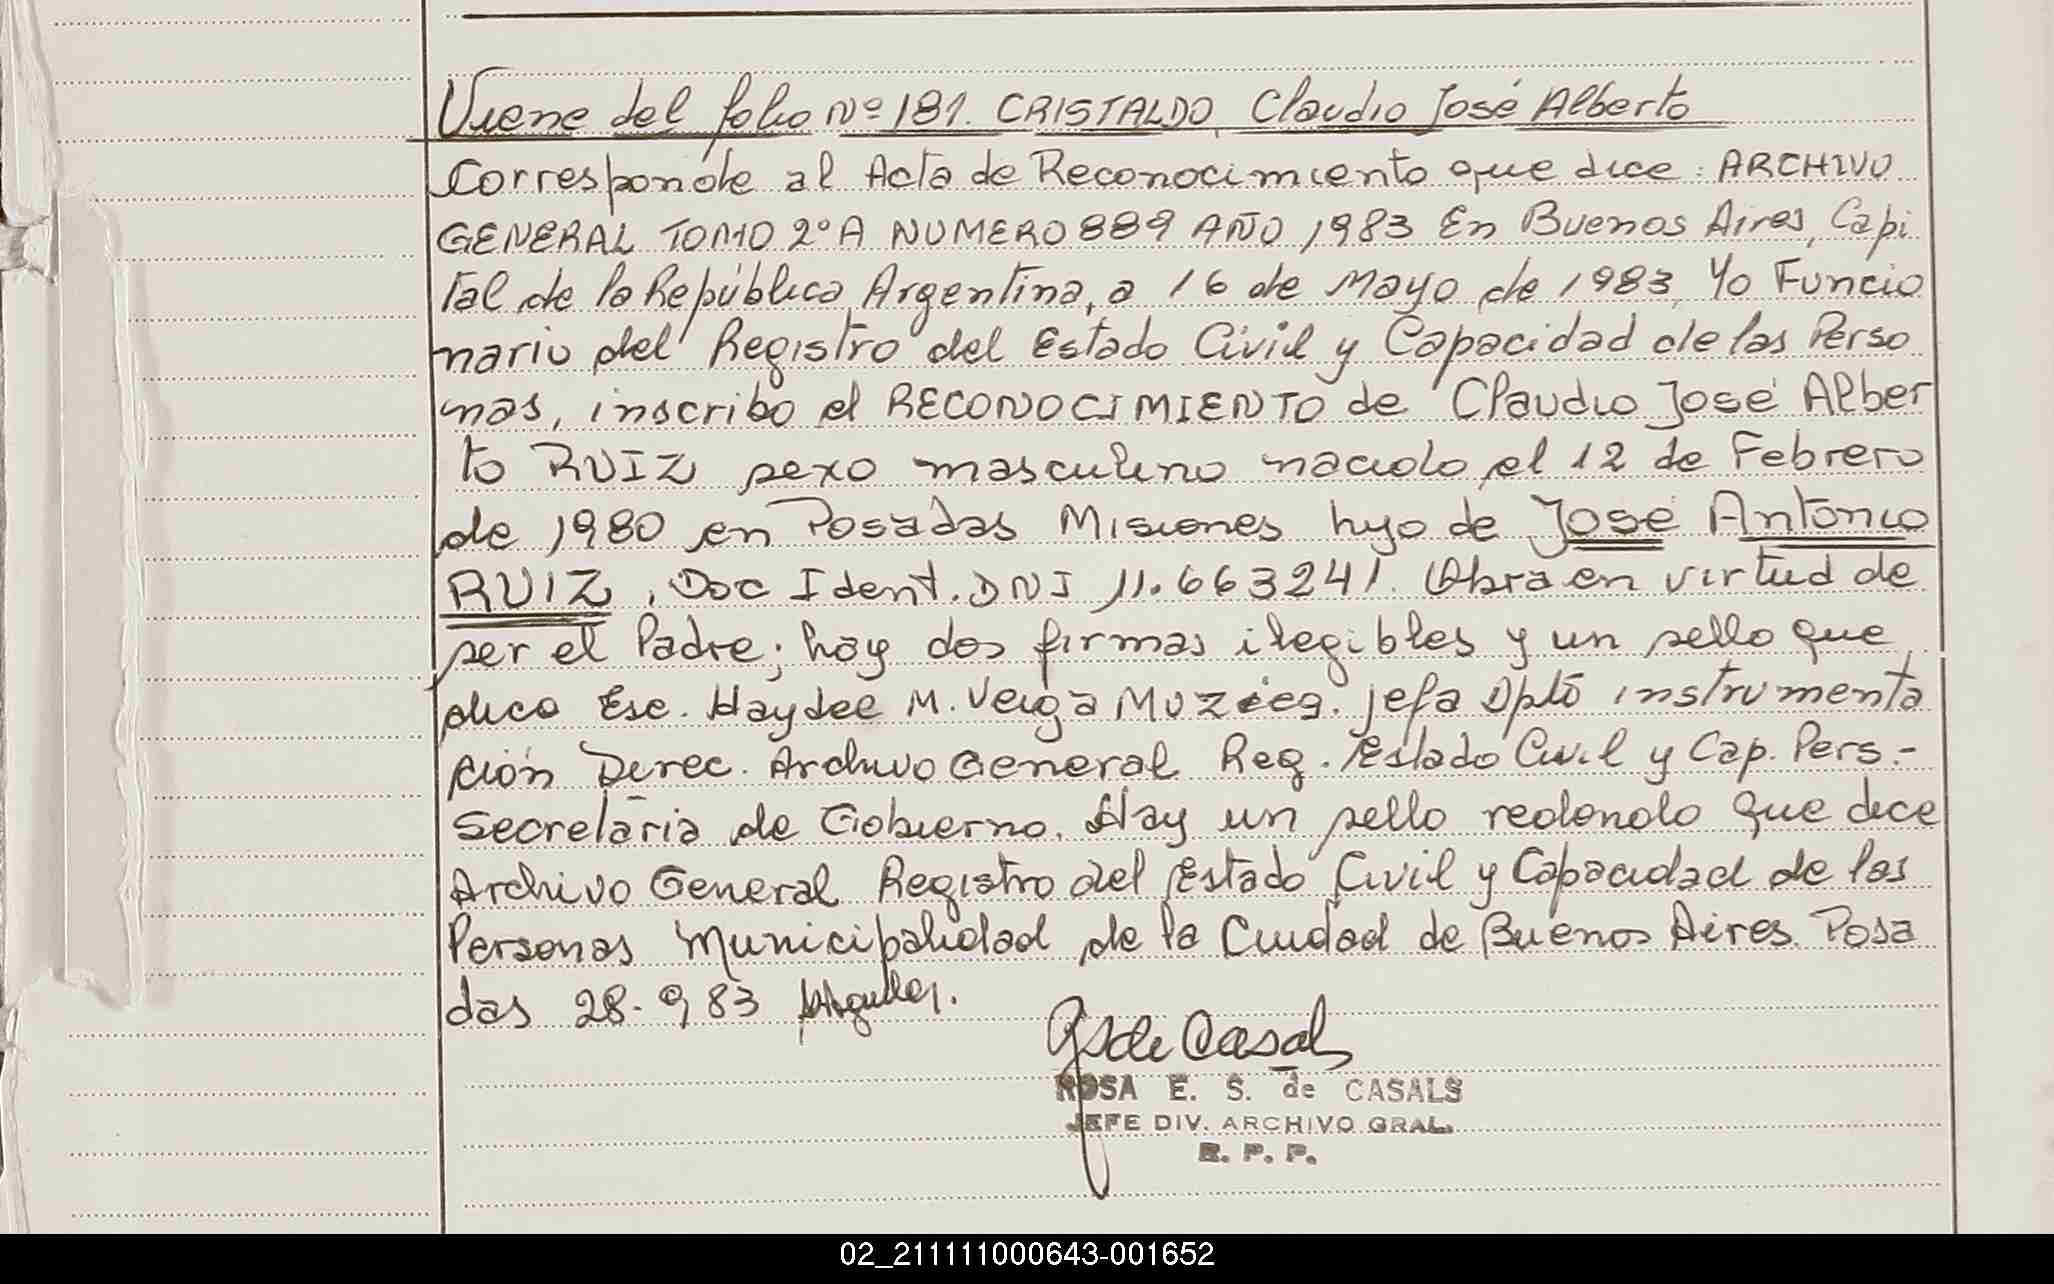 Viene del folio Nº 181. CRISTALDO, Claudio José Alberto
Corresponde al Acta de Reconocimiento que dice: ARCHIVO
GENERAL TOMO 2º A NUMERO 889 AÑO 1983 En Buenos Aires, Capi
tal de la República Argentina, a 16 de Mayo de 1983, Yo Funcio
nario del Registro del Estado Civil y Capacidad de las Perso
nas, inscribo el RECONOCIMIENTO de Claudio José Alber
to RUIZ sexo masculino nacido el 12 de Febrero
de 1980 en Posadas Misiones hijo de José Antonio
RUIZ, Doc Ident. DNI 11.663241. Obra en virtud de
ser el Padre; hay dos firmas ilegibles y un sello que
dice Esc. Haydee M. Veiga jefa Dptō instrumenta
ción Direc. Archivo General Reg. Estado Civil y Cap. Pers.-
Secretaria de Gobierno. Hay un sello redondo que dice
Archivo General Registro del Estado Civil y Capacidad de las
Personas Municipalidad de la Ciudad de Buenos Aires. Posa
das 28-9 83
de Casals
ROSA E. S. de CASALS
JEFE DIV. ARCHIVO GRAL.
R. P. P.
02_211111000643-001652